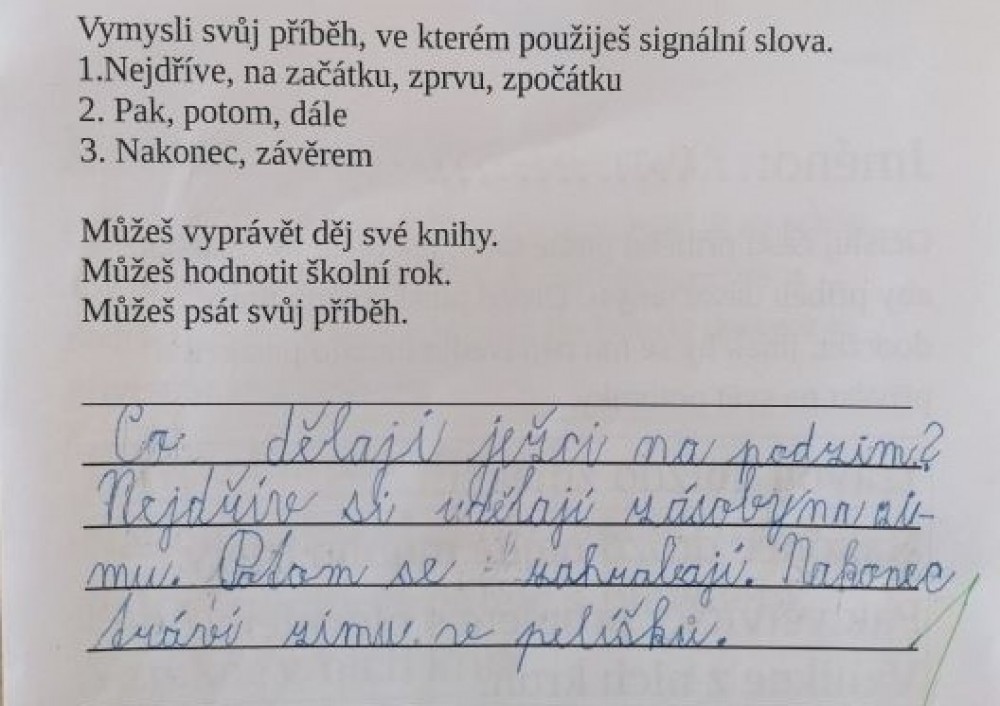 Vymysli svůj příběh, ve kterém použiješ signální slova.
1.Nejdříve, na začátku, zprvu, zpočátku
2. Pak, potom, dále
3. Nakonec, závěrem
Můžeš vyprávět děj své knihy.
Můžeš hodnotit školní rok.
Můžeš psát svůj příběh.
Co dělají ježci na podzim?
Nejdříve si udělají zásoby na zi-
mu. Potom se zahrabají. Nakonec
tráví zimu v pelíšků.